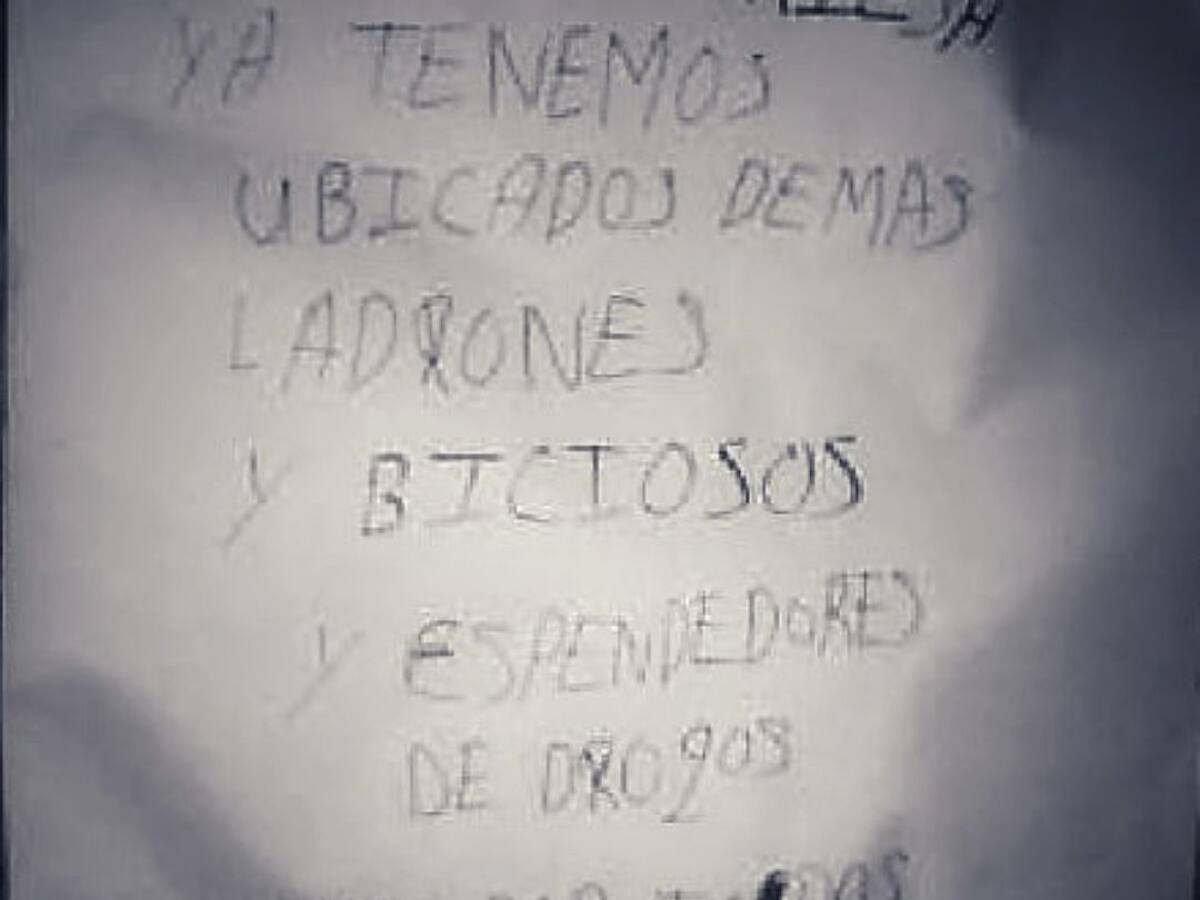 YA TENEMOS
UBICADOS DEMAS
LADRONES
Y BICIOSOS
Y ESPENDEDORES
DE DROgas